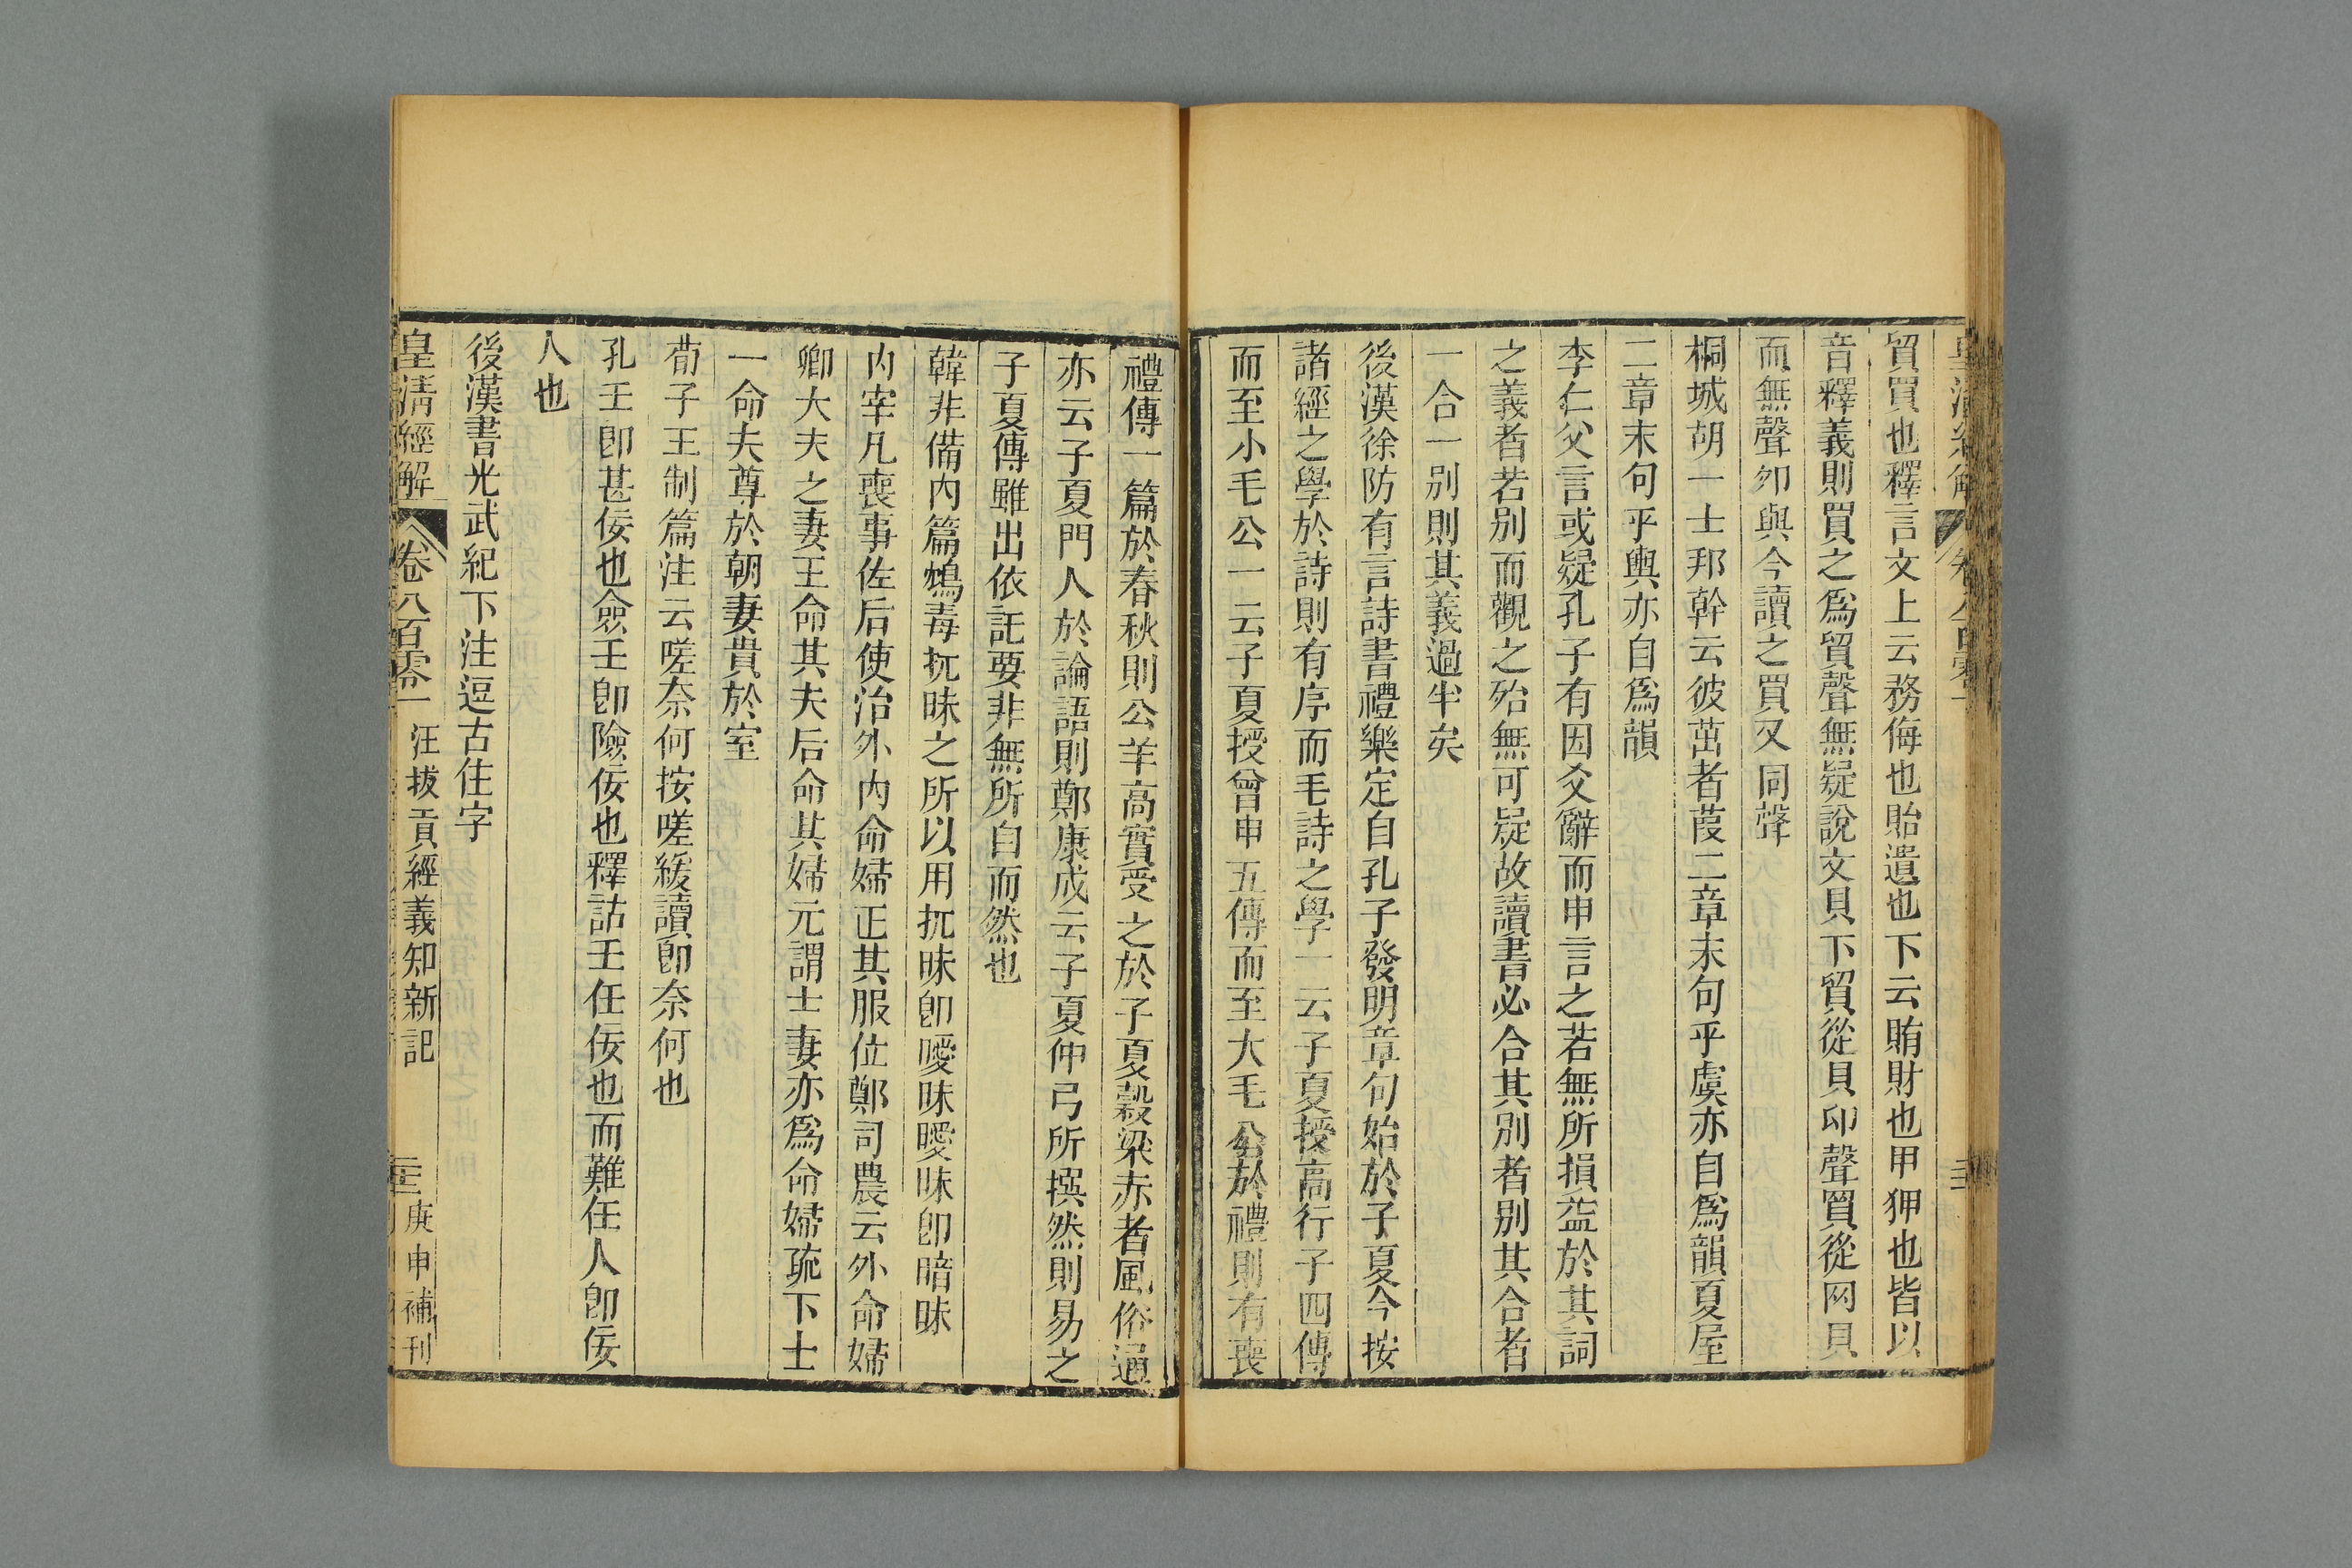 貿買也釋言文上云務侮也貽遺也下云賄財也甲狎也皆以
音釋義則買之爲貿聲無疑說文貝下貿從貝丣聲買從网貝
而無聲夘與今讀之買又同聲
桐城胡一士邦幹云彼茁者葭二章末句乎虞亦自爲韻夏屋
二章末句乎輿亦自爲韻
李仁父言或疑孔子有因爻辭而申言之若無所損益於其詞
之義者若别而觀之殆無可疑故讀書必合其别者别其合者
一合一别則其義過半矣
後漢徐防有言詩書禮樂定自孔子發明章句始於子夏今按
諸經之學於詩則有序而毛詩之學一云子夏授高行子四傳
而至小毛公一云子夏授曾申五傳而至大毛公於禮則有喪
禮傳一篇於春秋則公羊高實受之於子夏穀梁赤者風俗通
亦云子夏門人於論語則鄭康成云子夏仲弓所撰然則易之
子夏傳雖出依託要非無所自而然也
韓非備內篇鴆毒扤昧之所以用扤昧卽曖昧曖昧卽暗昧
内宰凡喪事佐后使治外内命婦正其服位鄭司農云外命婦
卿大夫之妻王命其夫后命其婦元謂士妻亦爲命婦疏下士
一命夫尊於朝妻貴於室
荀子王制篇注云嗟奈何按嗟緩讀卽奈何也
孔壬卽甚佞也僉壬卽險佞也釋詁壬任佞也而難任人卽佞
人也
後漢書光武紀下注逗古住字
皇清經解 卷八百零一 汪拔貢經義知新記 庚申補刊